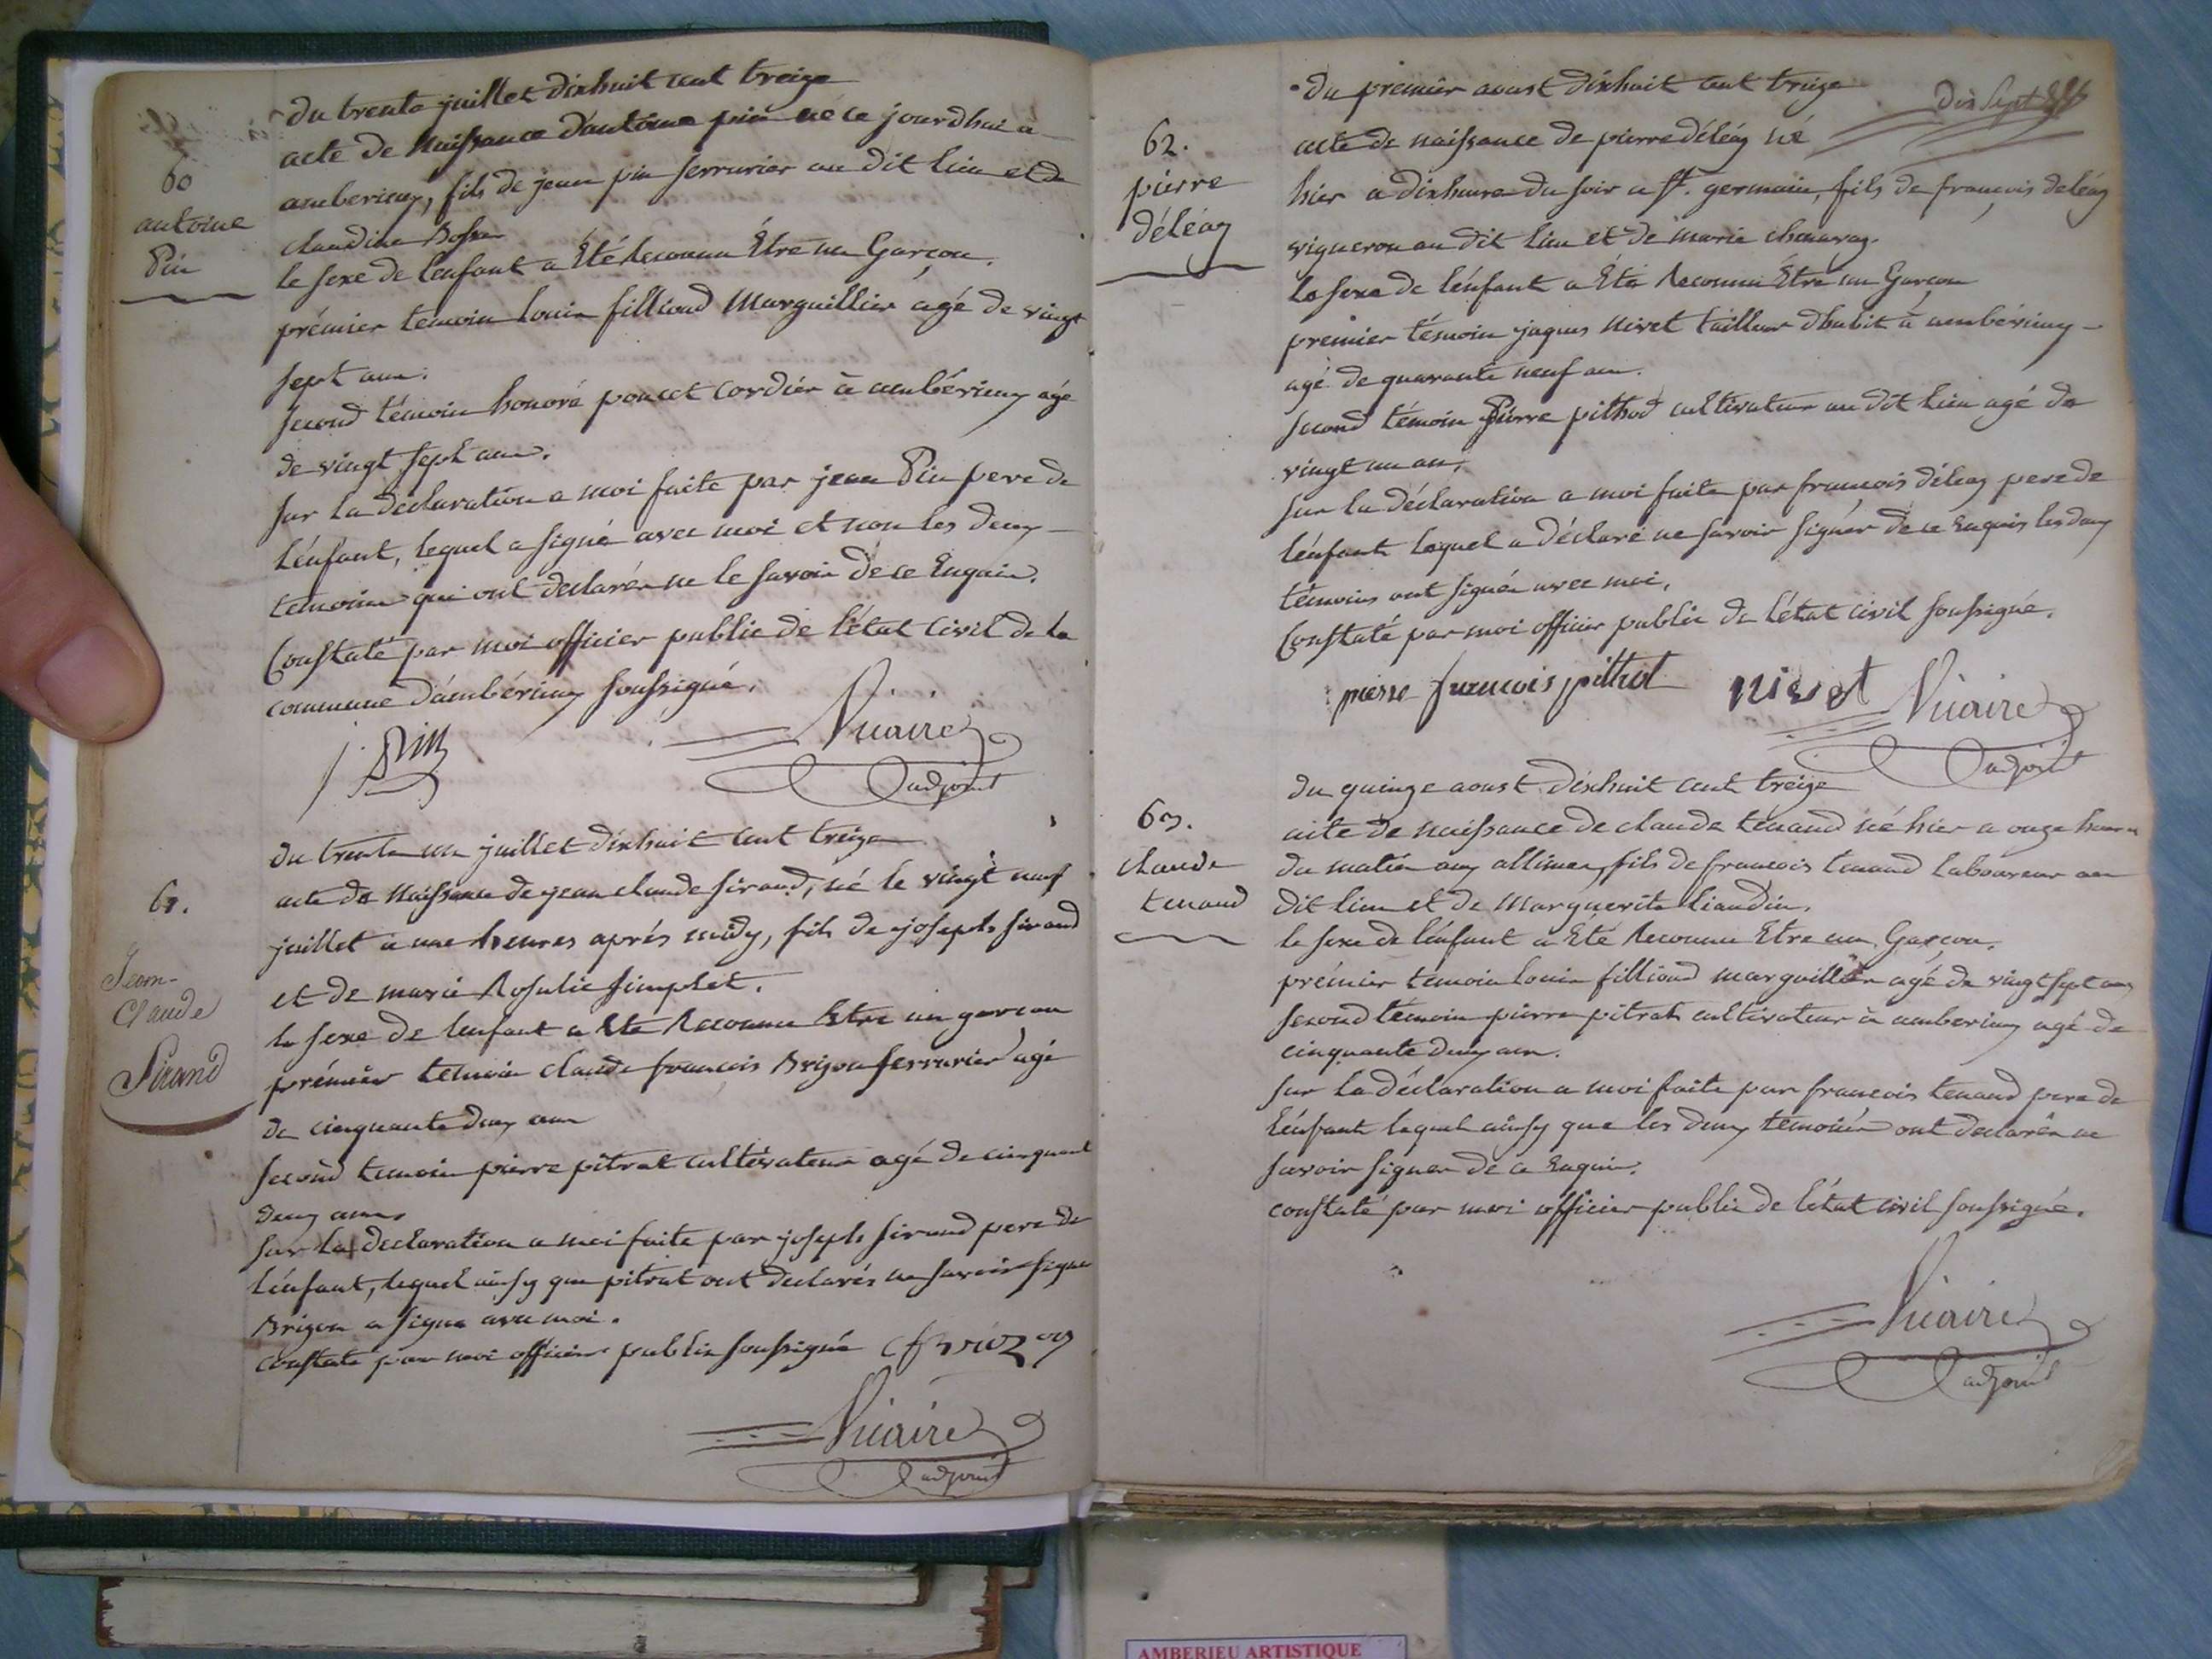 60
antoine
Pin
du trente juillet dixhuit cent treize
acte de Naissance d'antoine pin né ce jourdhui a
amberieux, fils de jean pin serrurier au dit lieu et de
claudine
le sexe de l'enfant a Été Reconnu Être un Garçon.
prémier temoin louis fillioud Marguillier agé de vingt
sept ans.
second témoin honoré poncet cordier à ambérieux agé
de vingt sept ans.
sur la déclaration a moi faite par jean Pin pere de
l'énfant, lequel a signé avec moi et non les deux
temoins qui ont declarés ne le savoir de ce Enquis.
Constaté par moi officier public de l'état Civil de la
commune d'ambérieux soussigné.
j. Pin
Vicaire
adjoint
61.
Jean-
Claude
Sirand
du trente un juillet dixhuit cent treize
acte de Naissance de jean claude sirand, né le vingt neuf
juillet à une heures aprés midy, fils de joseph sirand
et de marie Rosalie simplet.
le sexe de lenfant a Eté Reconnu Etre un garcon
prémier temoin claude francois Brizon serrurier agé
de cinquante deux ans
second temoin pierre pitrat cultivateur agé de cinquante
deux annes
sur la declaration a moi faite par joseph sirand pere de
l'énfant, lequel ainsy que pitrat ont declarés ne savoir signer
Brizon a signé avec moi.
constaté par moi officier public soussigné cf brizon
Vicaire
adjoint
dix sept
62.
pierre
déléaz
du premier aoust dixhuit cent treize
acte de naissance de pierre déléaz né
hier a dixheures du soir a st. germain, fils de françois deléaz
vigneron au dit lieu et de marie
le sexe de l'énfant a Été Reconnu Être un Garçon
premier témoin jaques nivet tailleur dhabit à ambérieux
agé de quarante neuf ans.
second témoin Pierre pithod cultivateur au dit lieu agé de
vingt un an.
sur la déclaration a moi faite par françois déléaz pere de
l'énfant lequel a déclaré ne savoir signér de ce Enquis les deux
témoins ont signés avec moi.
Constaté par moi officier public de l'état civil soussigné.
pierre francois pithot nivet Vicaire
adjoint
63.
claude
tenand
du quinze aoust dixhuit cent treize
acte de naissance de claude tenand né hier a onze heures
du matin aux allimes, fils de francois tenand laboureur au
dit lieu et de Marguerite liaudin.
le sexe de l'énfant a Eté Reconnu Etre un Garçon.
prémier temoin louis fillioud marguillier agé de vingt sept ans
second témoin pierre pitrat cultivateur à amberieux agé de
cinquante deux ans.
sur la déclaration a moi faite par francois tenand pere de
l'énfant lequel ainsy que les deux témoins ont declarés ne
savoir signer de ce Enquis.
constaté par moi officier public de l'état civil soussigné.
Vicaire
adjoint
AMBERIEU ARTISTIQUE